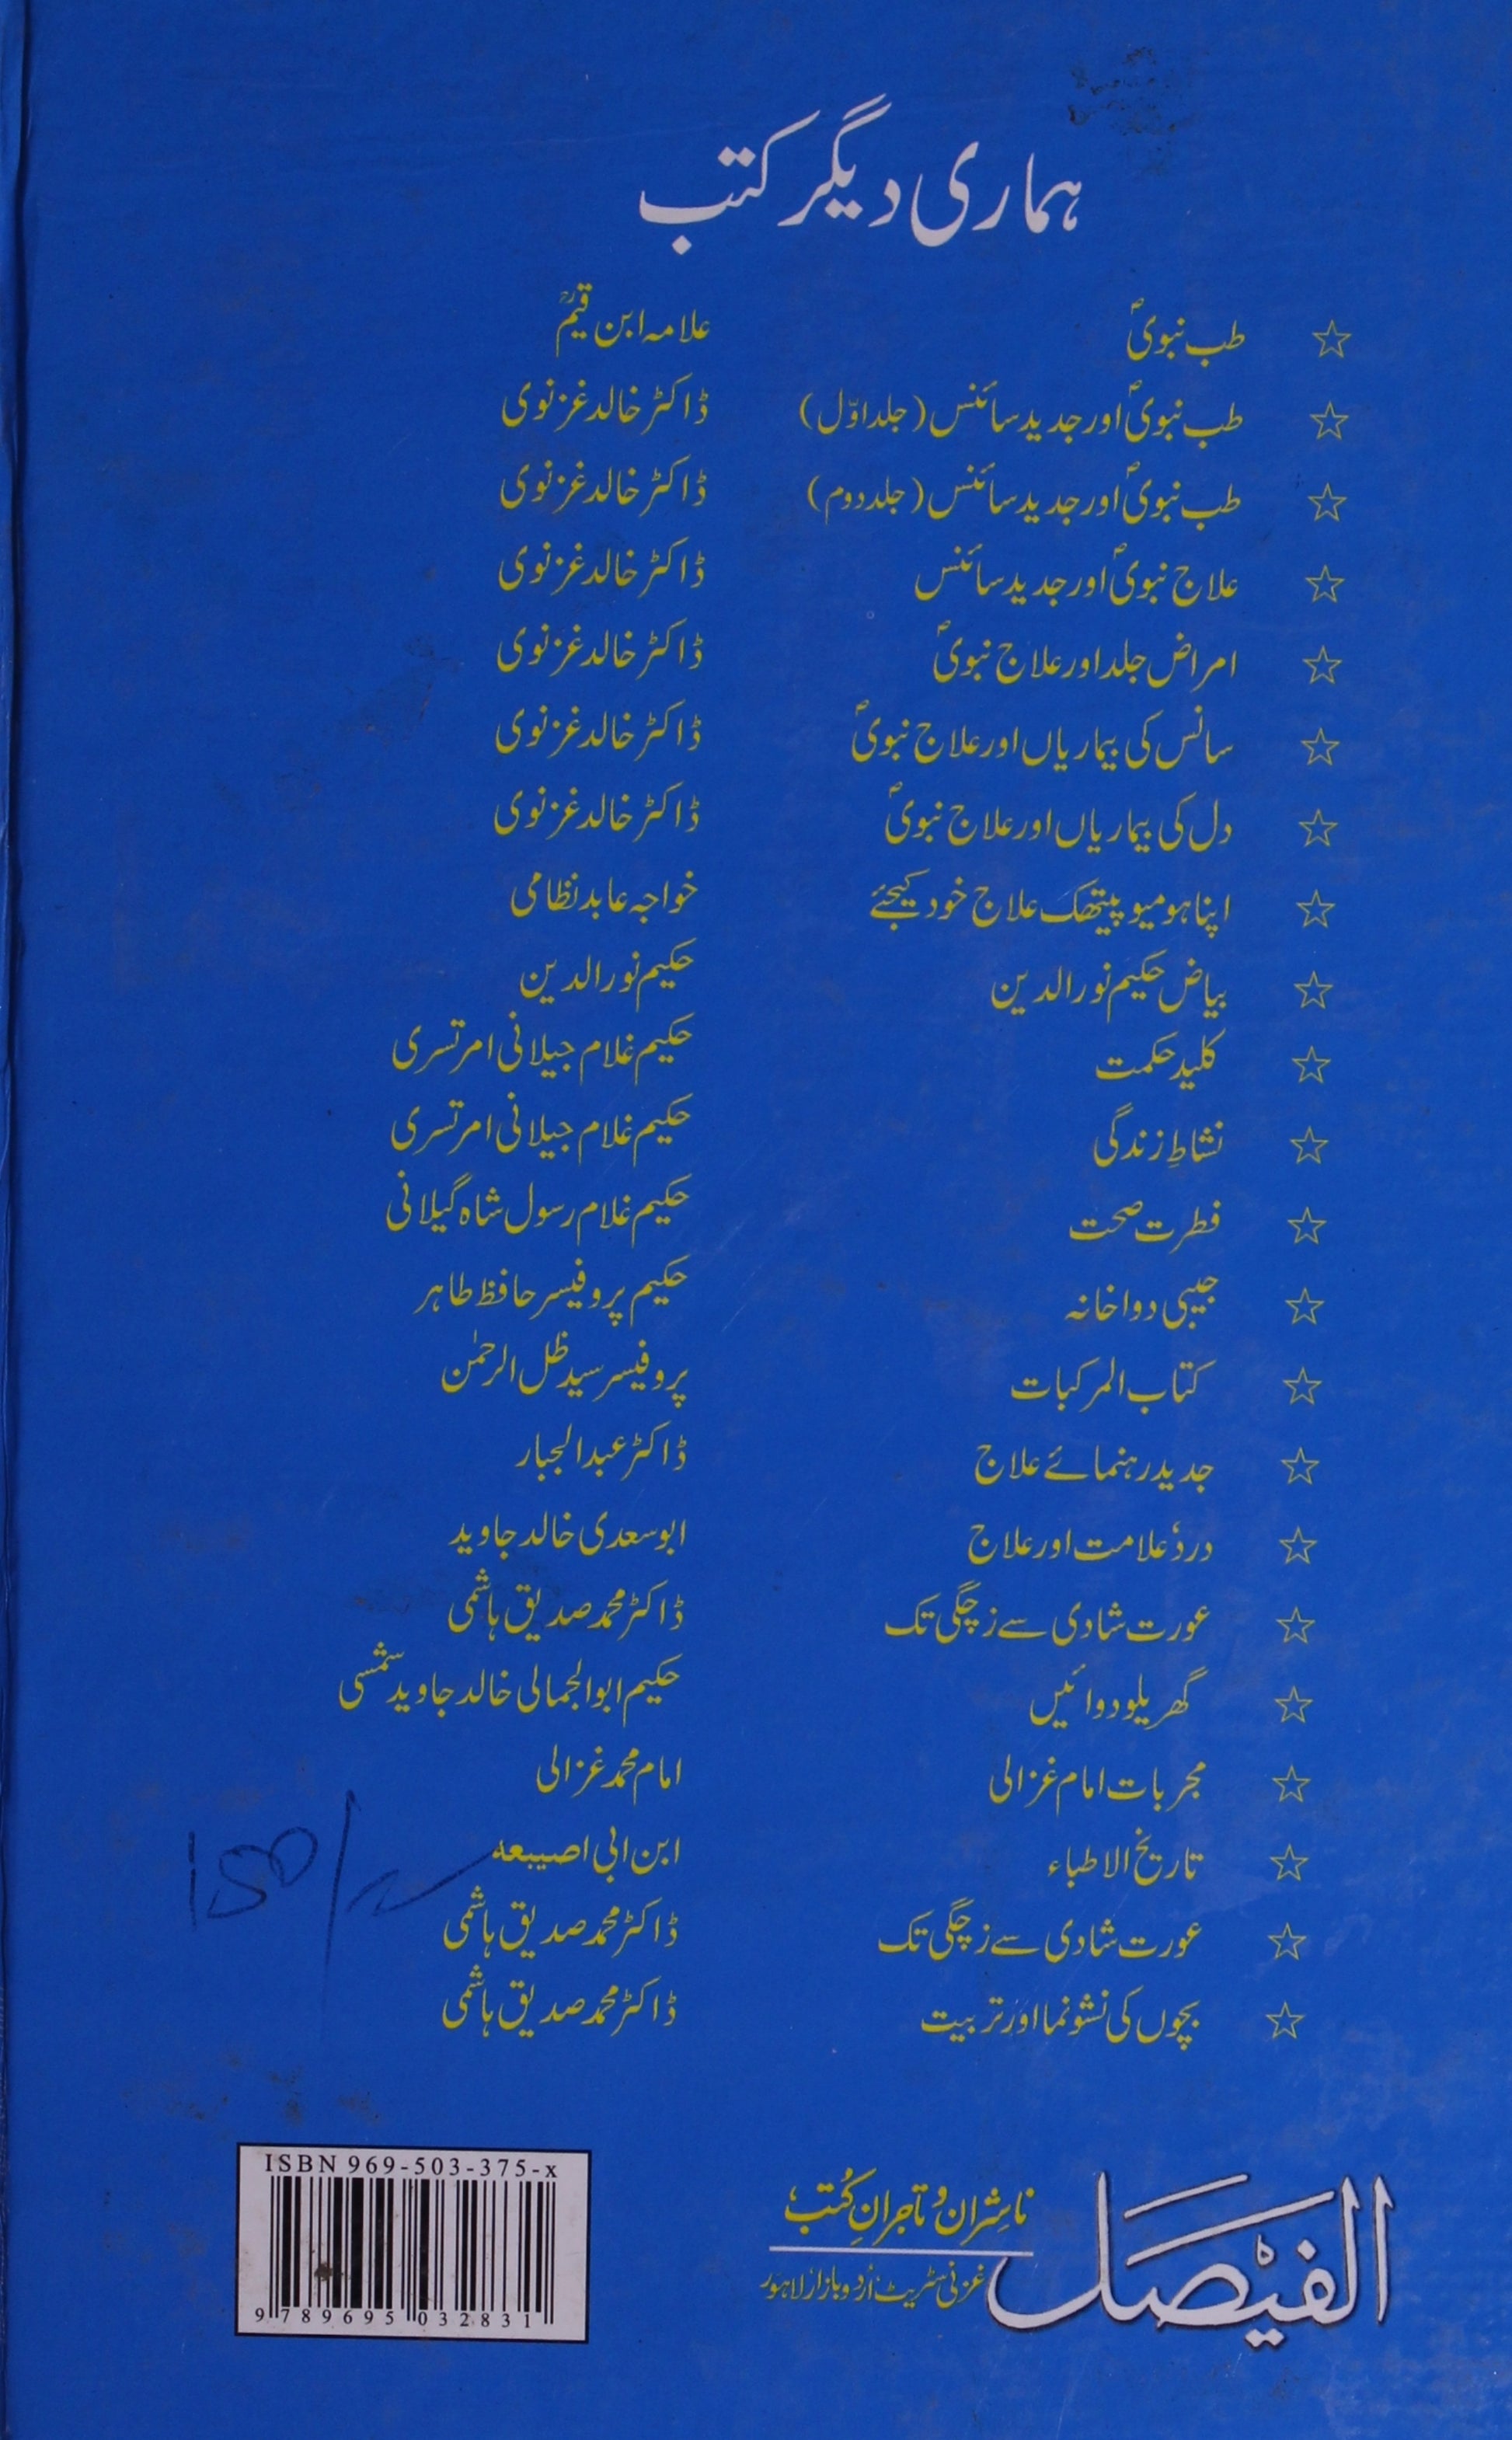 ہماری دیگر کتب
☆ طب نبویؐ علامہ ابن قیمؒ
☆ طب نبویؐ اور جدید سائنس (جلد اوّل) ڈاکٹر خالد غزنوی
☆ طب نبویؐ اور جدید سائنس (جلد دوم) ڈاکٹر خالد غزنوی
☆ علاج نبویؐ اور جدید سائنس ڈاکٹر خالد غزنوی
☆ امراض جلد اور علاج نبویؐ ڈاکٹر خالد غزنوی
☆ سانس کی بیماریاں اور علاج نبویؐ ڈاکٹر خالد غزنوی
☆ دل کی بیماریاں اور علاج نبویؐ ڈاکٹر خالد غزنوی
☆ اپنا ہومیوپیتھک علاج خود کیجئے خواجہ عابد نظامی
☆ بیاض حکیم نور الدین حکیم نور الدین
☆ کلید حکمت حکیم غلام جیلانی امرتسری
☆ نشاطِ زندگی حکیم غلام جیلانی امرتسری
☆ فطرت صحت حکیم غلام رسول شاہ گیلانی
☆ جیبی دواخانہ حکیم پروفیسر حافظ طاہر
☆ کتاب المرکبات پروفیسر سید ظل الرحمٰن
☆ جدید رہنمائے علاج ڈاکٹر عبدالجبار
☆ درد' علامت اور علاج ابوسعدی خالد جاوید
☆ عورت شادی سے زچگی تک ڈاکٹر محمد صدیق ہاشمی
☆ گھریلو دوائیں حکیم ابوالجمالی خالد جاوید شمسی
☆ مجربات امام غزالی امام محمد غزالی
☆ تاریخ الاطباء ابن ابی اصیبعہ
☆ عورت شادی سے زچگی تک ڈاکٹر محمد صدیق ہاشمی
☆ بچوں کی نشوونما اور تربیت ڈاکٹر محمد صدیق ہاشمی
150/
الفیصل
ناشران و تاجرانِ کُتب
غزنی سٹریٹ' اُردو بازار' لاہور
ISBN 969-503-375-x
9 789695 032831